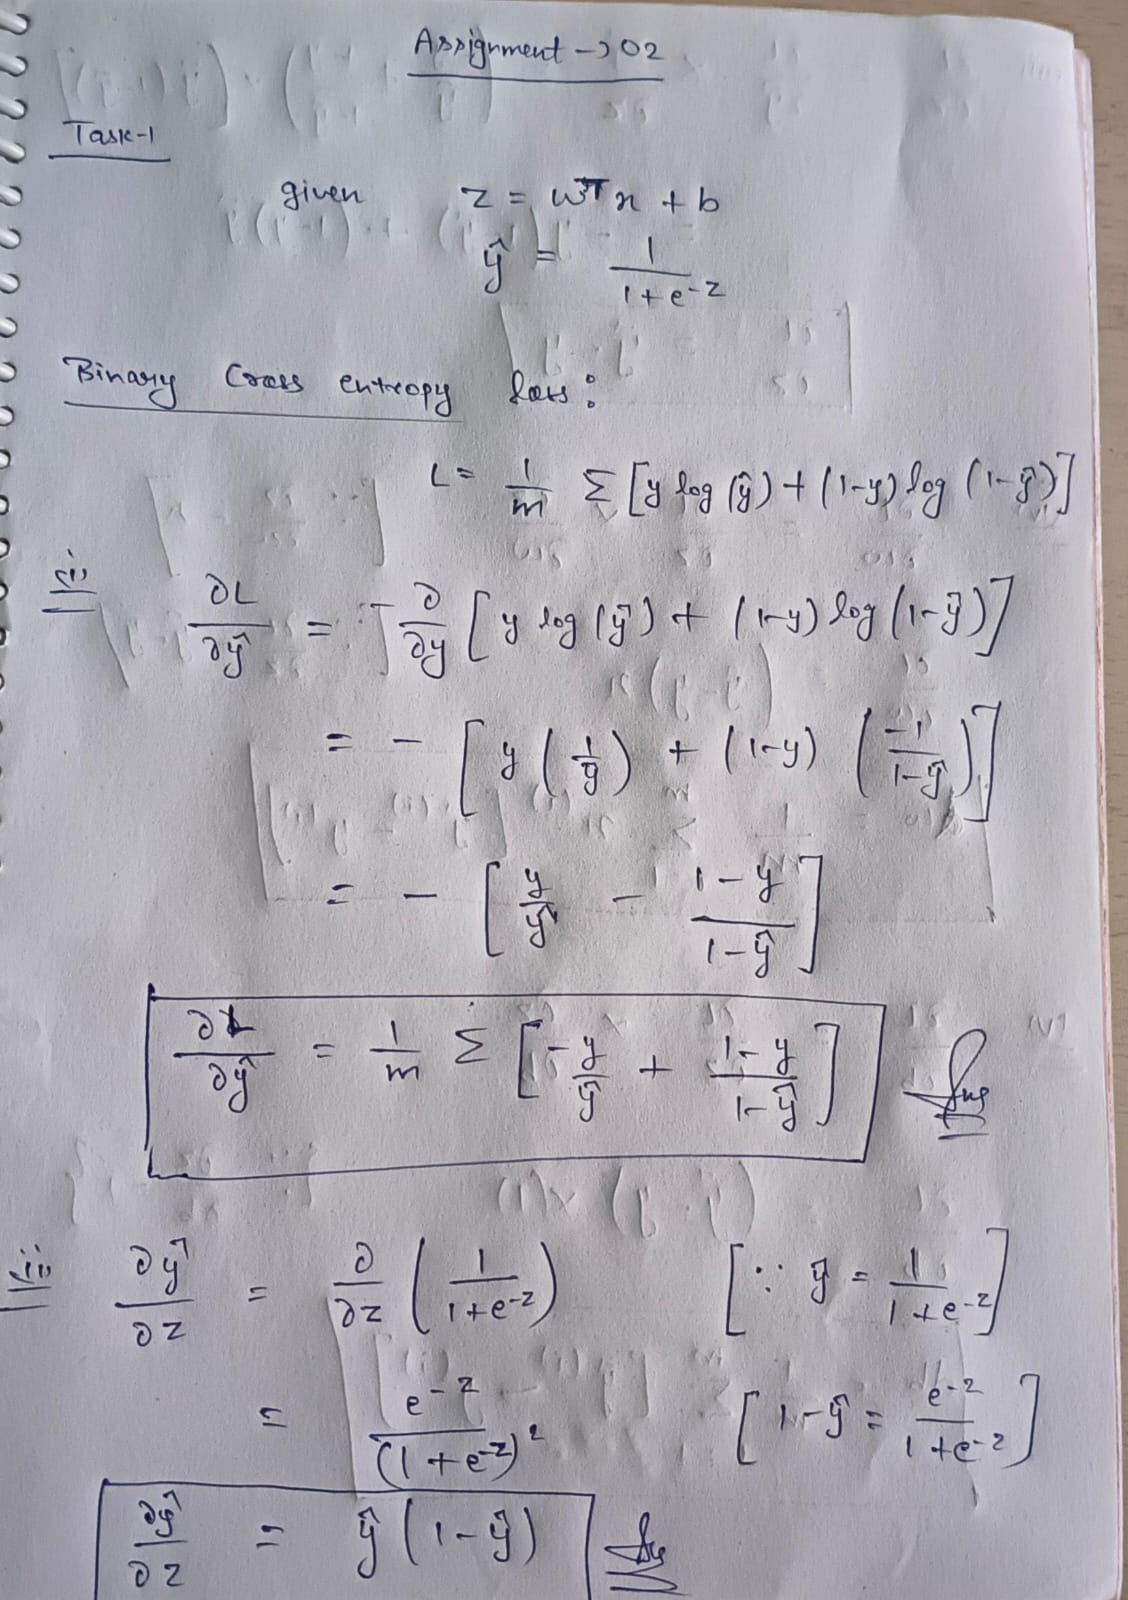 Assignment → 02
Task-1
given z = wᵀx + b
ŷ = 1/(1+e^-z)
Binary Cross entropy loss:
L = 1/m Σ [y log(ŷ) + (1-y) log(1-ŷ)]
(i) ∂L/∂ŷ = -∂/∂y [y log(ŷ) + (1-y) log(1-ŷ)]
= - [y(1/ŷ) + (1-y) (-1/(1-ŷ))]
= - [y/ŷ - (1-y)/(1-ŷ)]
∂L/∂ŷ = 1/m Σ [-y/ŷ + (1-y)/(1-ŷ)] Ans
(ii) ∂ŷ/∂z = ∂/∂z (1/(1+e^-z)) [∵ ŷ = 1/(1+e^-z)]
= e^-z/(1+e^-z)² [1-ŷ = e^-z/(1+e^-z)]
∂ŷ/∂z = ŷ(1-ŷ) Ans